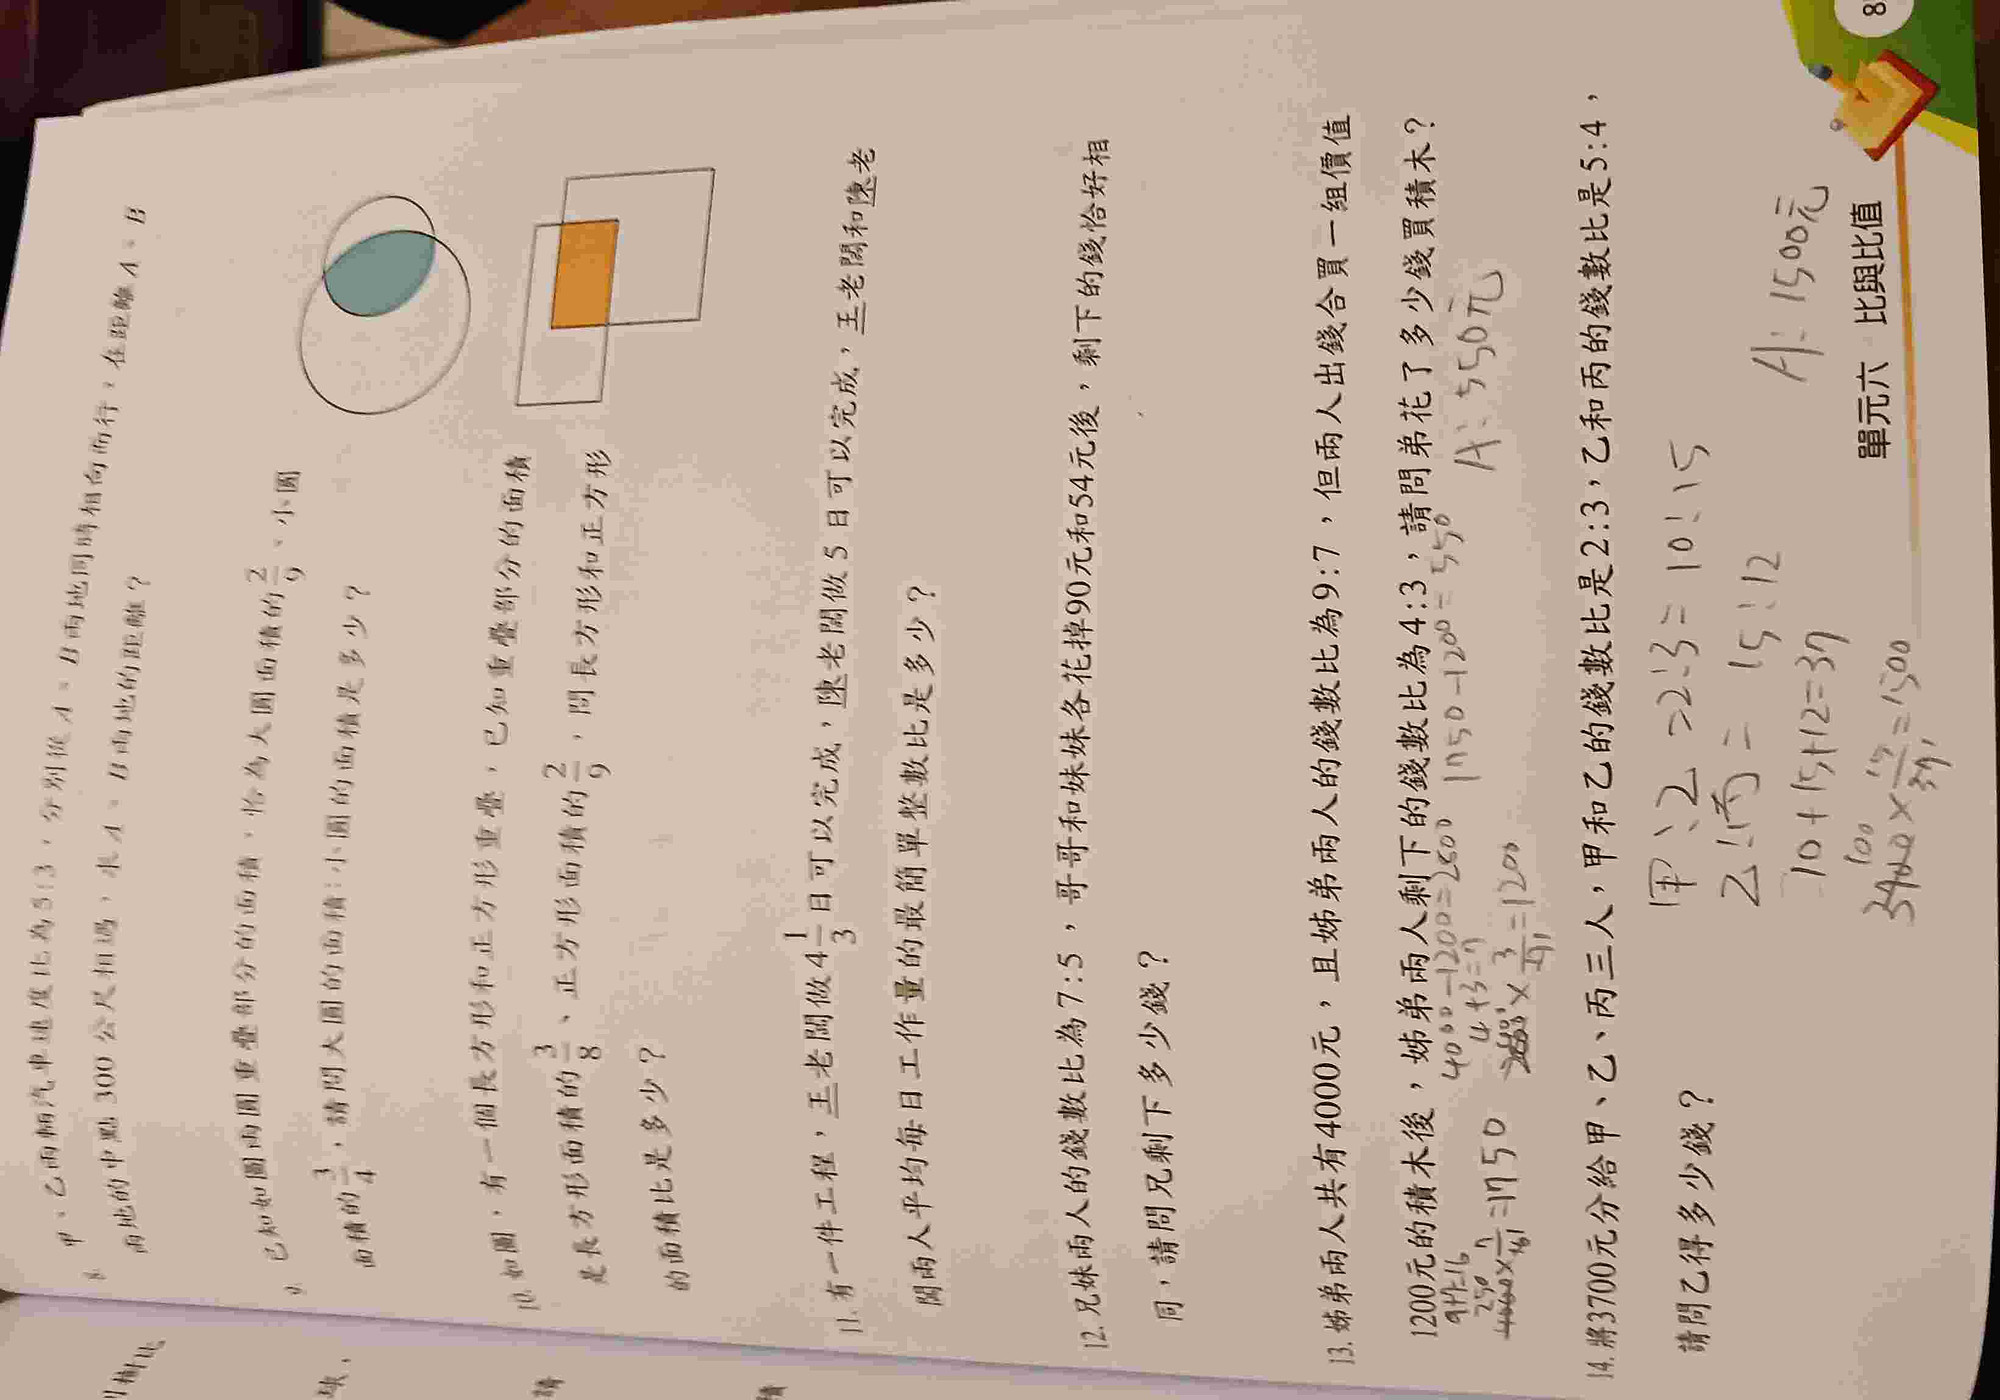 8. 甲、乙兩輛汽車速度比為5:3,分別從A、B兩地同時相向而行,在距離A、B
兩地的中點300公尺相遇,求A、B兩地的距離?
9. 已知如圖兩圓重疊部分的面積,恰為大圓面積的2/9、小圓
面積的3/4,請問大圓的面積:小圓的面積是多少?
10. 如圖,有一個長方形和正方形重疊,已知重疊部分的面積
是長方形面積的3/8、正方形面積的2/9,問長方形和正方形
的面積比是多少?
11. 有一件工程,王老闆做4 1/3日可以完成,陳老闆做5日可以完成,王老闆和陳老
闆兩人平均每日工作量的最簡單整數比是多少?
12. 兄妹兩人的錢數比為7:5,哥哥和妹妹各花掉90元和54元後,剩下的錢恰好相
同,請問兄剩下多少錢?
13. 姊弟兩人共有4000元,且姊弟兩人的錢數比為9:7,但兩人出錢合買一組價值
1200元的積木後,姊弟兩人剩下的錢數比為4:3,請問弟花了多少錢買積木?
9+7=16
4000×7/16=1750
250
4000-1200=2800
4+3=7
2800×3/7=1200
1750-1200=550
A:550元
14. 將3700元分給甲、乙、丙三人,甲和乙的錢數比是2:3,乙和丙的錢數比是5:4,
請問乙得多少錢?
甲:乙=2:3=10:15
乙:丙=15:12
10+15+12=37
100
3700×15/37=1500
A:1500元
單元六 比與比值
8